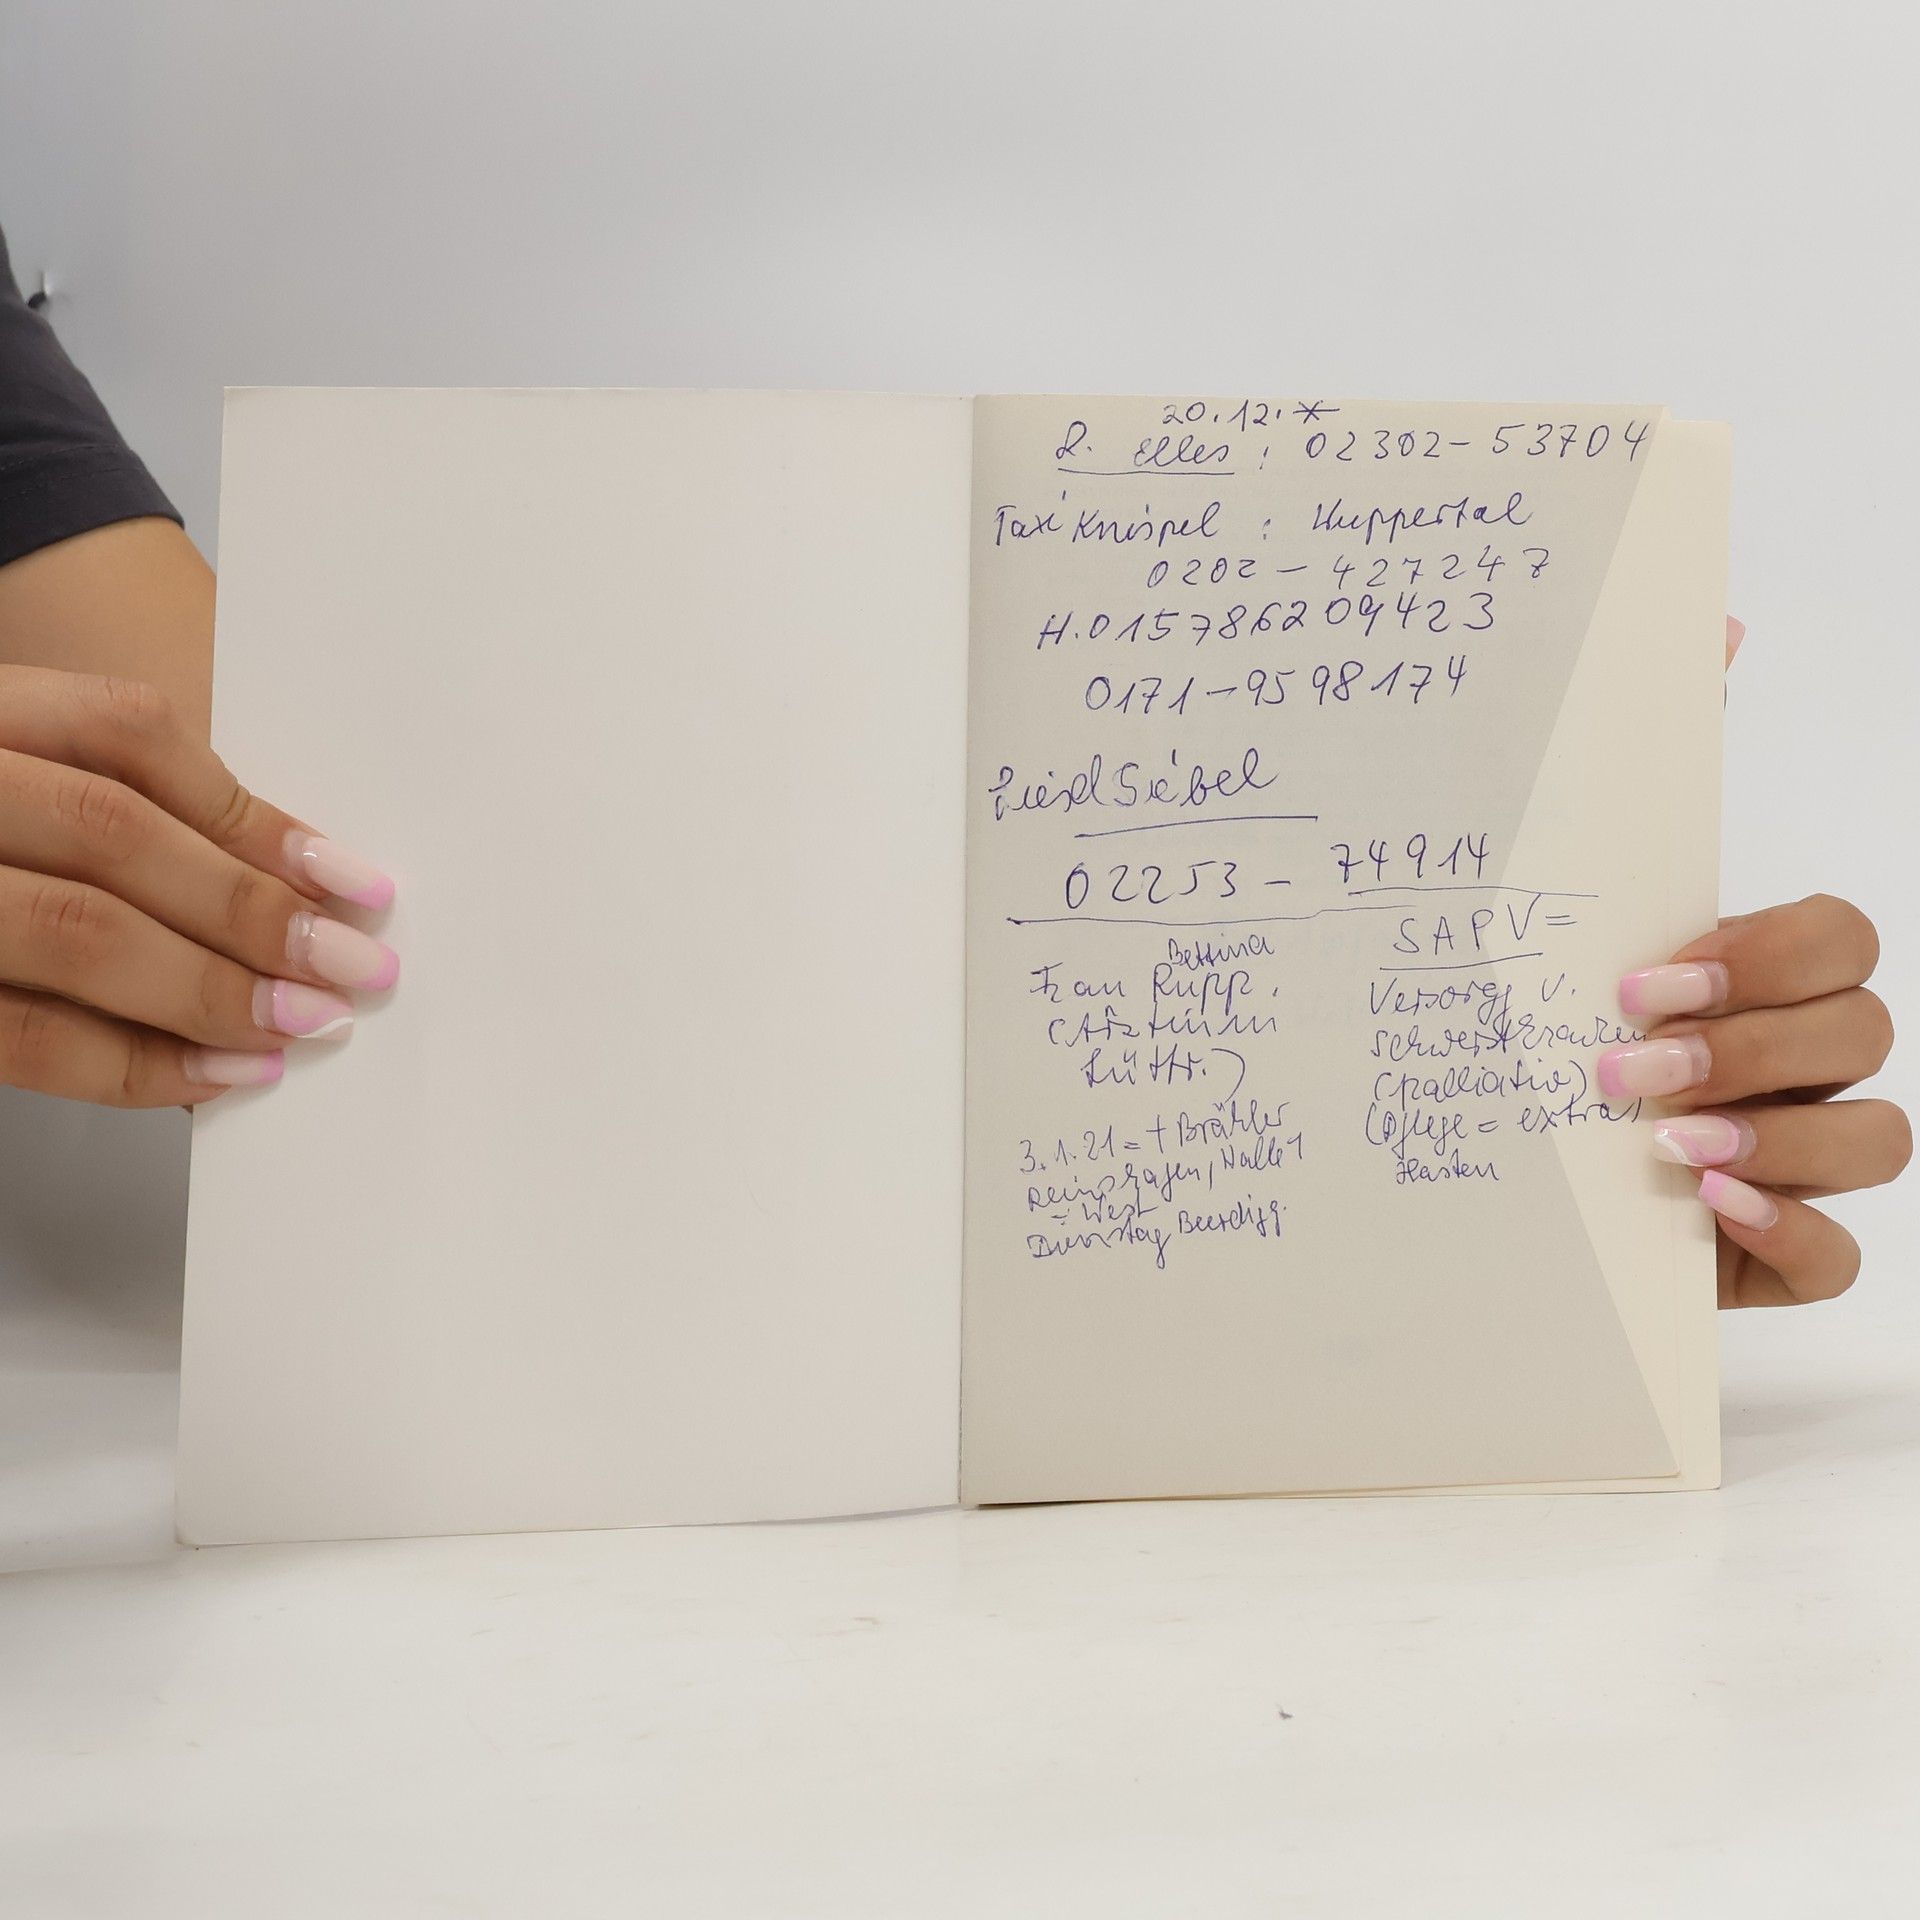 20.12.*
R. Elles : 02302-53704
Taxi Knispel : Wuppertal
0202 - 427247
H. 015786209423
0171-9598174
Liesel Siebel
02253 - 74914
Bettina
Frau Rupp.
(Ärztinnen
Lüttr.)
3.1.21 = + Brähler
Reinshagen, Halle 1
= West
Dienstag Beerdigg.
SAPV =
Versorgg v.
Schwerstkranken
(palliativ)
(Pflege = extra)
Hasten